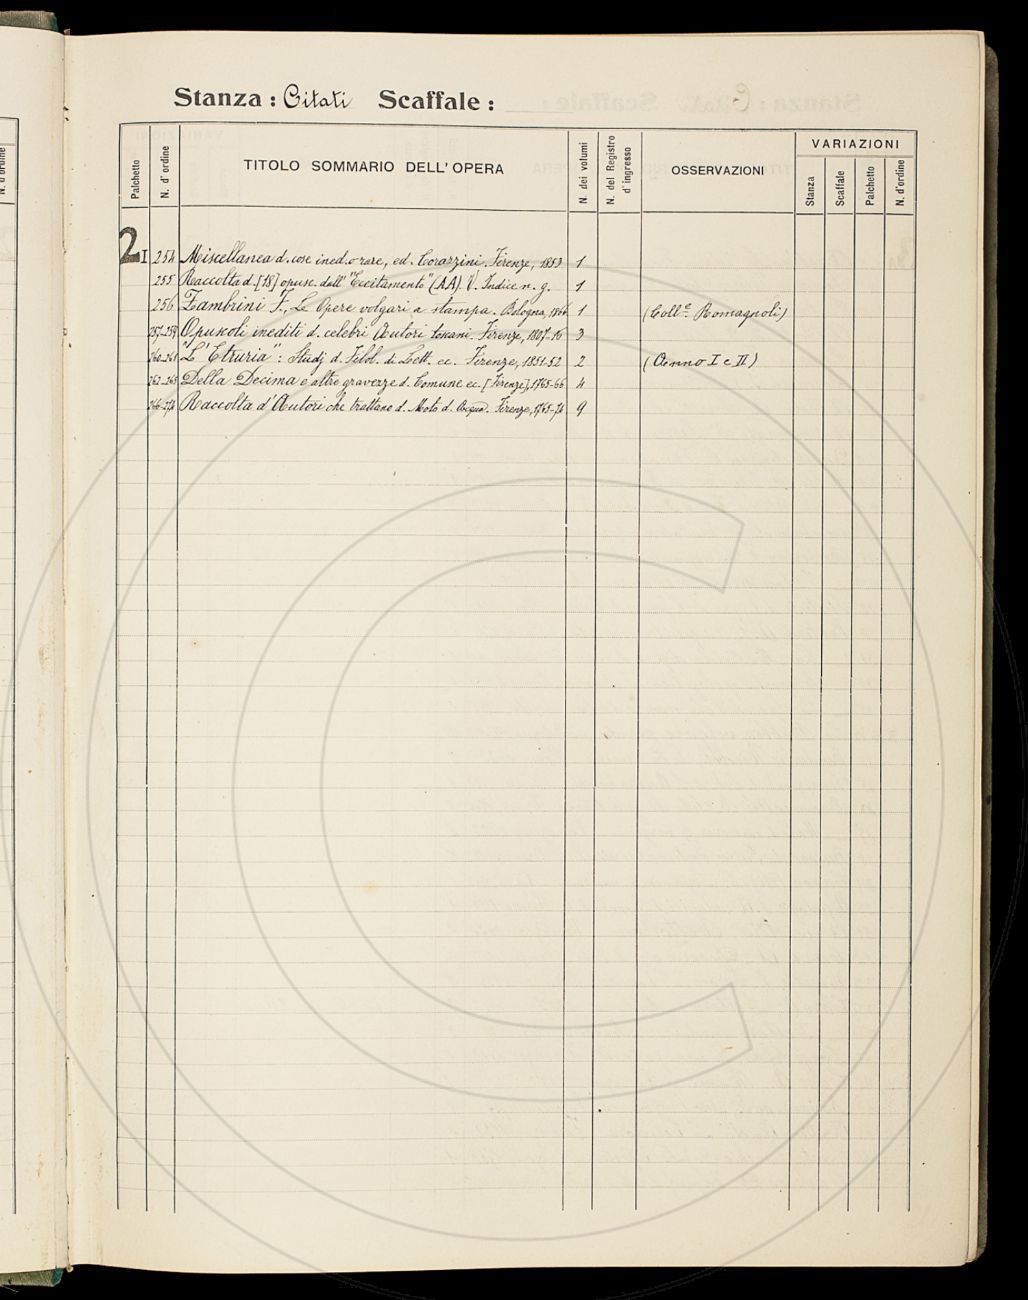 Stanza: Citati Scaffale:
Palchetto N. d'ordine TITOLO SOMMARIO DELL'OPERA N. dei volumi N. del Registro d'ingresso OSSERVAZIONI VARIAZIONI Stanza Scaffale Palchetto N. d'ordine
2 I 254 Miscellanea d. cose ined. o rare, ed. Corazzini. Firenze, 1853 1
255 Raccolta d. [18] opusc. dall' "Eccitamento" (AA). V. Indice n. g. 1
256 Zambrini F., Le Opere volgari a stampa. Bologna, 1866 1 (Coll.e Romagnoli)
257-259 Opuscoli inediti d. celebri Autori toscani. Firenze, 1807-16 3
260-261 "L'Etruria": Studj d. Filol. di Lett. ec. Firenze, 1851-52 2 (Anno I e II)
262-265 Della Decima e altre gravezze d. Comune ec. [Firenze], 1765-66 4
266-274 Raccolta d'Autori che trattano d. Moto d. Acque. Firenze, 1765-74 9
N. d'ordine